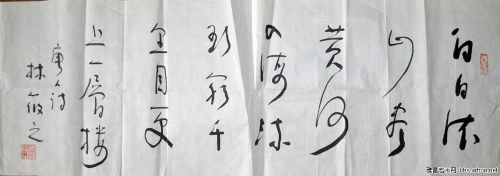 白日依
山尽
黄河
入海流
欲穷千
里目更
上一層楼
唐人诗
林筱之